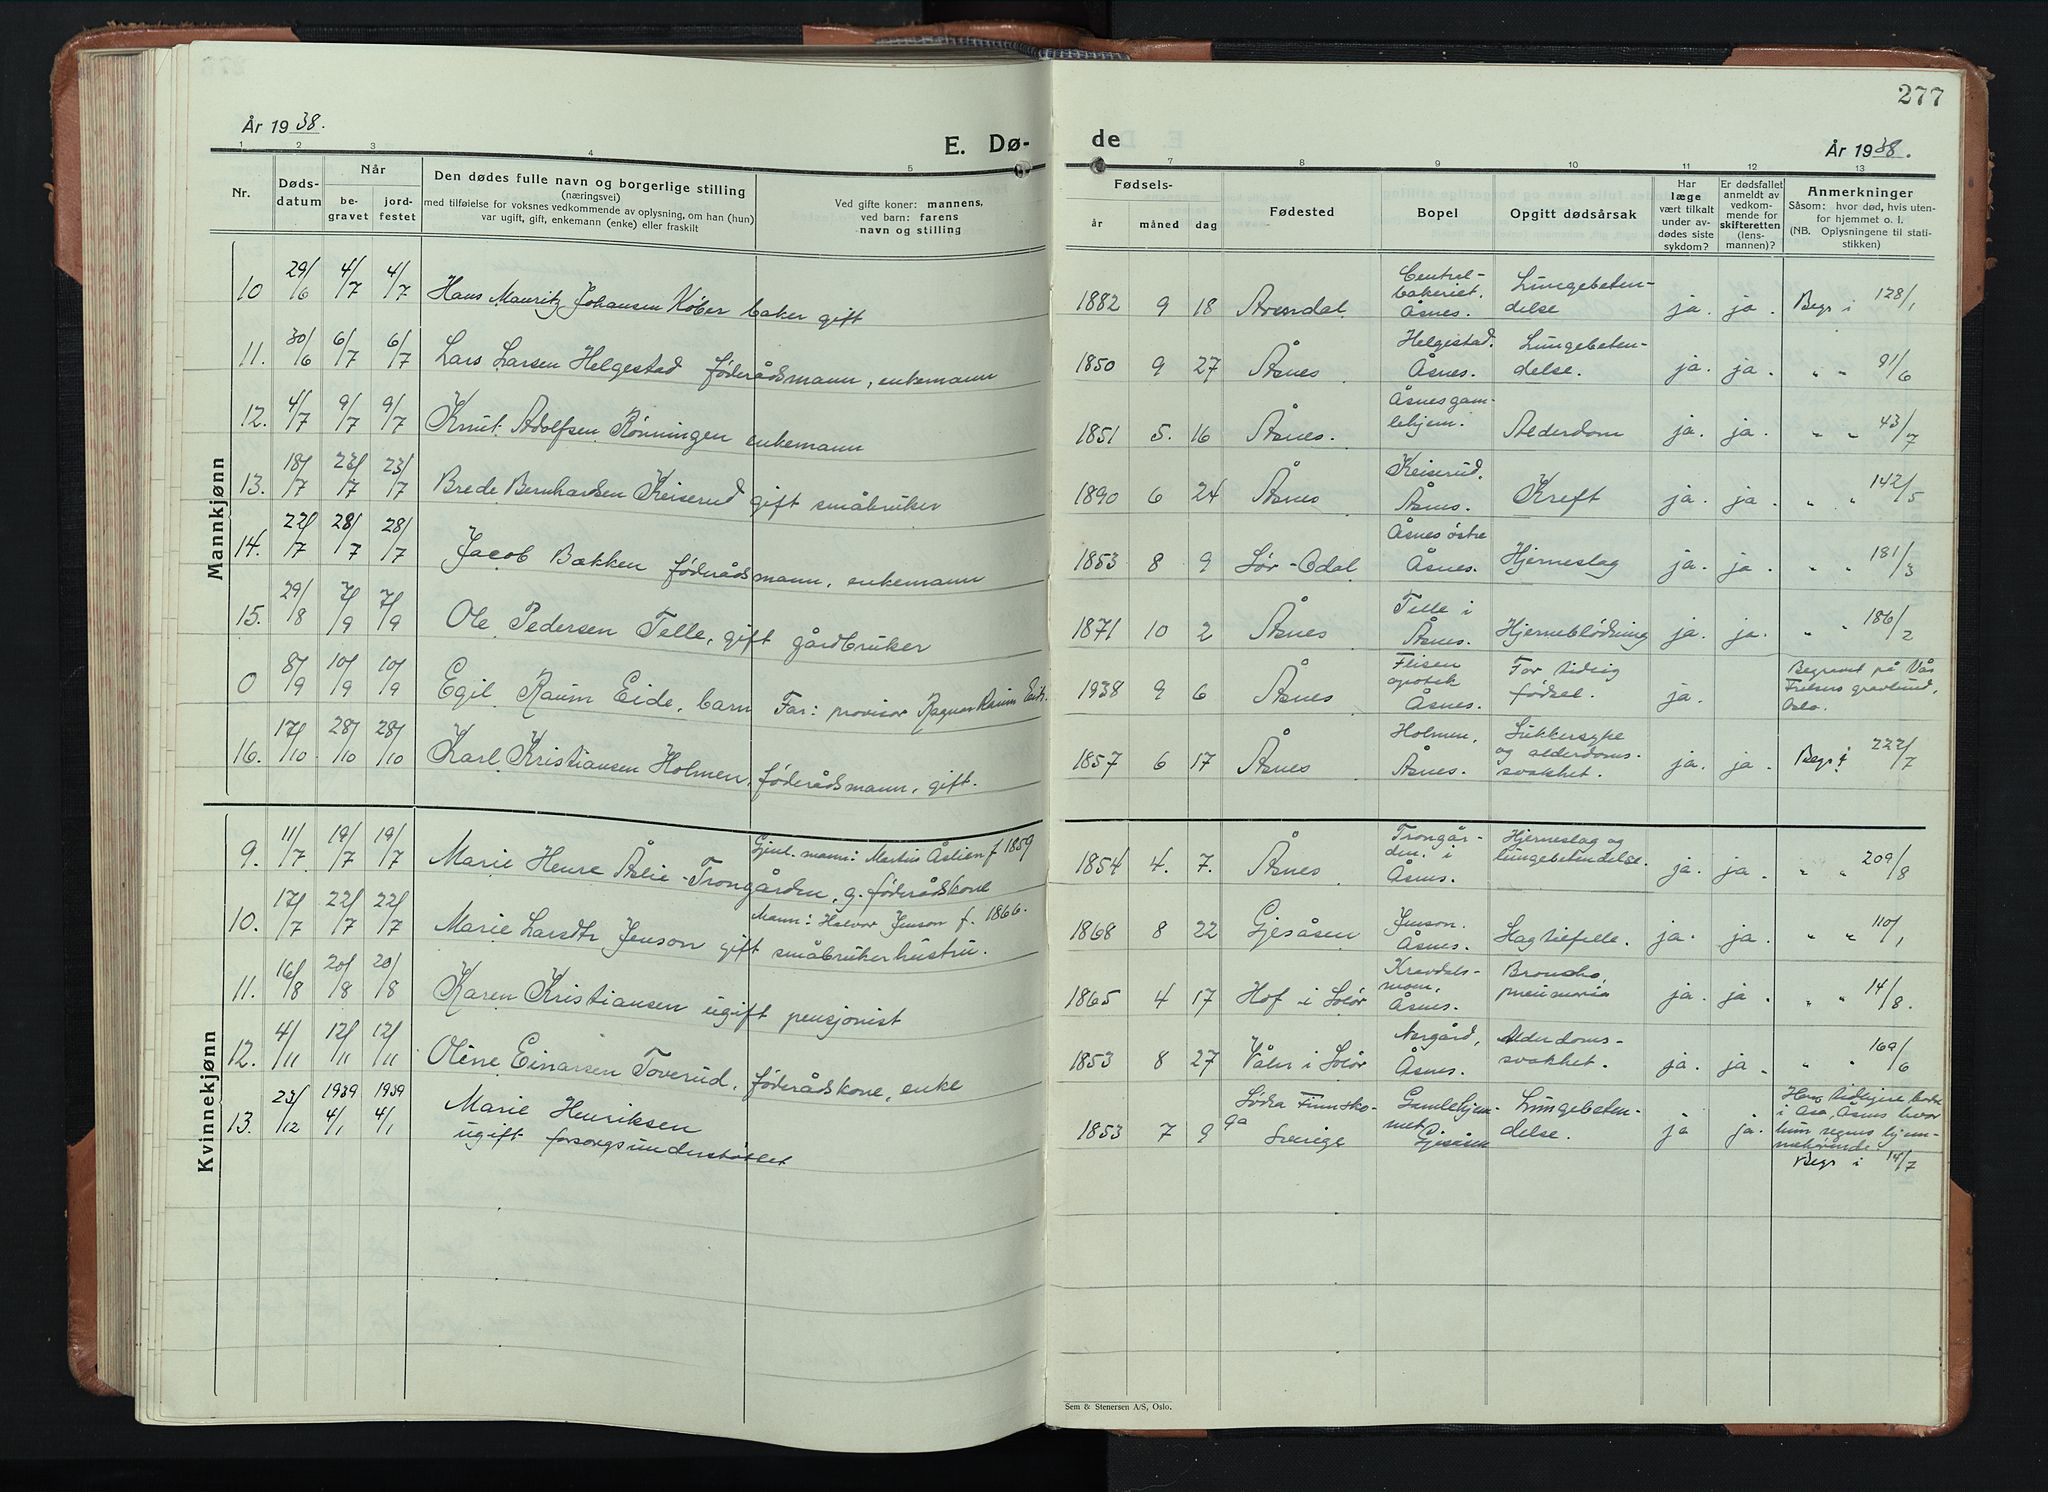 277
År 1938.
E. Dø-
de
År 1938.
1 2 3 4 5 7 8 9 10 11 12 13
Nr.
Døds-
datum
Når
be-
gravet
jord-
festet
Den dødes fulle navn og borgerlige stilling
(næringsvei)
med tilføielse for voksnes vedkommende av oplysning, om han (hun)
var ugift, gift, enkemann (enke) eller fraskilt
Ved gifte koner: mannens,
ved barn: farens
navn og stilling
Fødsels-
år måned dag
Fødested
Bopel
Opgitt dødsårsak
Har
læge
vært tilkalt
under av-
dødes siste
sykdom?
Er dødsfallet
anmeldt av
vedkom-
mende for
skifteretten
(lens-
mannen)?
Anmerkninger
Såsom: hvor død, hvis uten-
for hjemmet o. l.
(NB. Oplysningene til stati-
stikken)
Mannkjønn
10 29/6 4/7 4/7 Hans Mauritz Johansen Köber baker gift 1882 9 18 Arendal. Central-
bakeriet.
Åsnes. Lungebeten-
delse ja. ja. Begr i 128/1
11. 30/6 6/7 6/7 Lars Larsen Helgestad føderådsmann, enkemann 1850 9 27 Åsnes Helgestad.
Åsnes. Lungebeten-
delse. ja. ja. " " 91/6
12. 4/7 9/7 9/7 Knut Adolfsen Rönningen enkemann 1851 5. 16 Åsnes. Åsnes gam-
lehjem. Alderdom ja. ja. " " 43/7
13. 18/7 23/7 23/7 Brede Bernhardsen Keiserud gift småbruker 1890 6 24 Åsnes Keiserud.
Åsnes. Kreft ja. ja. " " 142/5
14. 22/7 28/7 28/7 Jacob Bækken føderådsmann, enkemann 1853 8 9 Sør-Odal Åsnes østre
Åsnes. Hjerneslag ja. ja. " " 181/3
15. 29/8 7/9 7/9 Ole Pedersen Telle, gift gårdbruker 1871 10 2 Åsnes Telle i
Åsnes. Hjerneblödning ja. ja. " " 186/2
0 8/9 10/9 10/9 Egil Raum Eide, barn Far: provisor Ragnar Raum Eide. 1938 9 6 Åsnes Flisen
apotek
Åsnes. For tidlig
fødsel. ja. Begravet på Vår
Frelsers gravlund,
Oslo.
16. 17/10 28/10 28/10 Karl Kristiansen Holmen, føderådsmann, gift. 1857 6 17 Åsnes Holmen,
Åsnes. Sukkersyke
og alderdoms-
svakhet. ja. ja. Begr i 222/7
Kvinnekjønn
9. 11/7 19/7 19/7 Marie Henre Åslie-Trongården, g. føderådskone Gjenl. mann: Martius Åslien f 1859 1854 4. 7. Åsnes Trongår-
den i
Åsnes. Hjerneslag og
lungebetendelse. ja. ja. " " 209/8
10. 17/7 22/7 22/7 Marie Larsdtr Jenson gift småbrukerhustru. Mann: Halvor Jenson f. 1866. 1868 8 22 Gjesåsen Jenson.
Åsnes. Slagtilfelle. ja. ja. " " 110/1
11. 16/8 20/8 20/8 Karen Kristiansen ugift pensjonist 1865 4 17 Hof i Solør Kravdals-
mom,
Åsnes. Broncho
pneumonia ja ja. " " 14/8.
12. 4/11 12/11 12/11 Oline Einarsen Toverud, føderådskone, enke 1853 8 27 Våler i Solør Norgård,
Åsnes. Alderdoms-
svakhet. ja. ja. " " 169/6
13. 23/12 1939 4/1 1939 4/1 Marie Henriksen
ugift forsorgsunderstøttet 1853 7 9 Södra Finnsko-
ga Sverige Gamlehjem-
met
Gjesåsen Lungebeten-
delse. ja ja. Hans tidligere bodde
i Åsa, Åsnes hvor
hun regnes hjem-
mehørende.
Begr i 14/7
Sem & Stenersen A/S, Oslo.